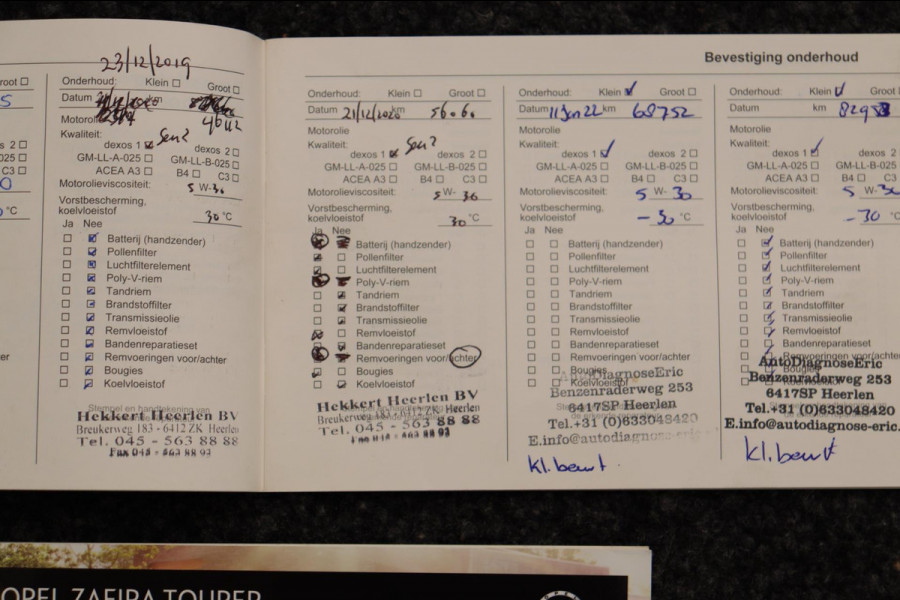 Bevestiging onderhoud
Groot
°C
23/12/2019
Onderhoud: Klein Groot
Datum km
Motorolie
Kwaliteit: Sen2
dexos 1 dexos 2
GM-LL-A-025 GM-LL-B-025
ACEA A3 B4 C3
Motorolieviscositeit: 5 W-30
Vorstbescherming,
koelvloeistof 30 °C
Ja Nee
Batterij (handzender)
Pollenfilter
Luchtfilterelement
Poly-V-riem
Tandriem
Brandstoffilter
Transmissieolie
Remvloeistof
Bandenreparatieset
Remvoeringen voor/achter
Bougies
Koelvloeistof
Stempel en handtekening van
Hekkert Heerlen BV
Beukerweg 183 - 6412 ZK Heerlen
Tel. 045 - 563 88 88
Fax 045 - 563 88 93
Onderhoud: Klein Groot
Datum 21/12/2020 km 56.06.
Motorolie
Kwaliteit: Sen2
dexos 1 dexos 2
GM-LL-A-025 GM-LL-B-025
ACEA A3 B4 C3
Motorolieviscositeit: 5 W- 30
Vorstbescherming,
koelvloeistof 30 °C
Ja Nee
Batterij (handzender)
Pollenfilter
Luchtfilterelement
Poly-V-riem
Tandriem
Brandstoffilter
Transmissieolie
Remvloeistof
Bandenreparatieset
Remvoeringen voor/achter
Bougies
Koelvloeistof
Hekkert Heerlen BV
Beukerweg 183 - 6412 ZK Heerlen
Tel. 045 - 563 88 88
Fax 045 - 563 88 93
Onderhoud: Klein Groot
Datum 11 Jan 22 km 68752
Motorolie
Kwaliteit:
dexos 1 dexos 2
GM-LL-A-025 GM-LL-B-025
ACEA A3 B4 C3
Motorolieviscositeit: 5 W- 30
Vorstbescherming,
koelvloeistof -30 °C
Ja Nee
Batterij (handzender)
Pollenfilter
Luchtfilterelement
Poly-V-riem
Tandriem
Brandstoffilter
Transmissieolie
Remvloeistof
Bandenreparatieset
Remvoeringen voor/achter
Bougies
Koelvloeistof
AutoDiagnoseEric
Benzenraderweg 253
6417SP Heerlen
Tel.+31 (0)633048420
E.info@autodiagnose-eric.
kl. beurt
Onderhoud: Klein Groot
Datum km
Motorolie
Kwaliteit:
dexos 1 dexos 2
GM-LL-A-025 GM-LL-B-025
ACEA A3 B4 C3
Motorolieviscositeit: 5 W- 30
Vorstbescherming,
koelvloeistof -30 °C
Ja Nee
Batterij (handzender)
Pollenfilter
Luchtfilterelement
Poly-V-riem
Tandriem
Brandstoffilter
Transmissieolie
Remvloeistof
Bandenreparatieset
Remvoeringen voor/achter
Bougies
AutoDiagnoseEric
Benzenraderweg 253
6417SP Heerlen
Tel.+31 (0)633048420
E.info@autodiagnose-eric.
kl. beurt
OPEL ZAFIRA TOURER